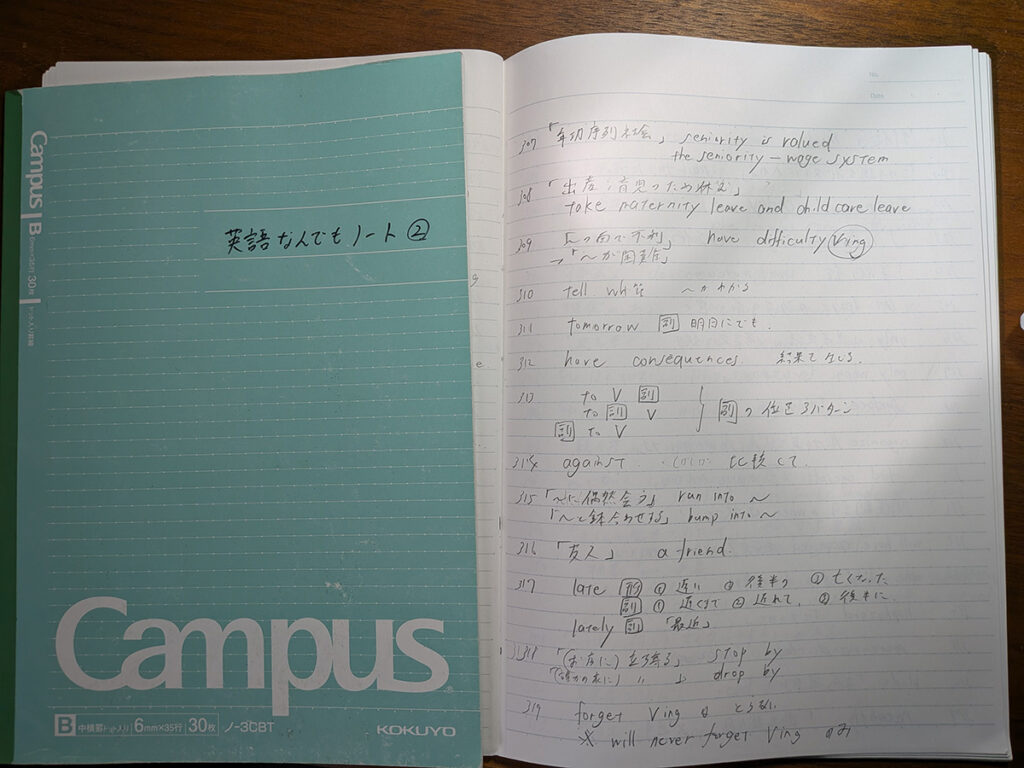 Campus B
6mm×35行 30枚 ドット入り罫線
英語なんでもノート②
Campus
B 中横罫ドット入り 6mm×35行 30枚 ノ-3CBT
KOKUYO
No.
Date
307 「年功序列社会」 seniority is valued
the seniority-wage system
308 「出産・育児のため休む」
take maternity leave and child care leave
309 「の面で不利」 have difficulty Ving
→「〜が困難」
310 tell. 〜がわかる
311 tomorrow 副 明日にでも.
312 have consequences. 結果を生じる.
313 to V 副
to 副 V
副 to V
副の位置3パターン
314 against 比較して.
315 「〜に偶然会う」 run into 〜
「〜と鉢合わせする」 bump into 〜
316 「友人」 a friend.
317 late 形 ① 近い ② 後半の ③ 亡くなった
副 ① 近くまで ② 遅れて. ③ 後半に
lately 副 「最近」
318 「(お店に)立ち寄る」 stop by
「(誰かの家に) 〃 」 drop by
319 forget Ving は とらない
※ will never forget Ving のみ